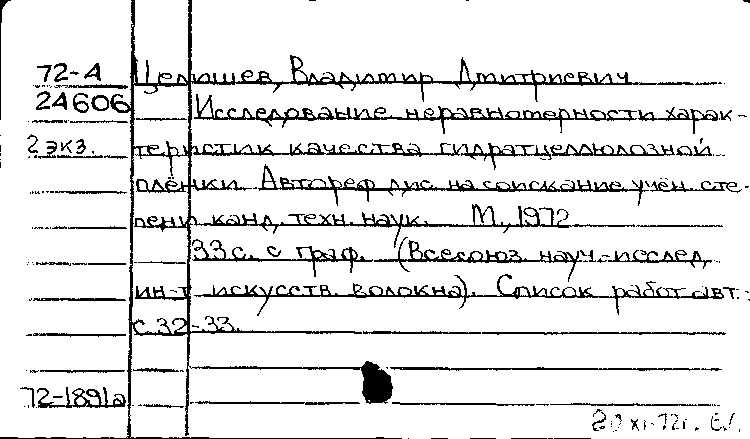 72-А Целищев, Владимир Дмитриевич
24606 Исследование неравномерности харак-
2 экз. теристик качества гидратцеллюлозной
плёнки. Автореф дис. на соискание учён. сте-
пени канд. техн. наук. М., 1972
33 с. с граф. (Всесоюз. науч.-исслед.
ин-т искусств. волокна). Список работ авт.:
с. 32-33.
72-1891а
20 XI-72г.